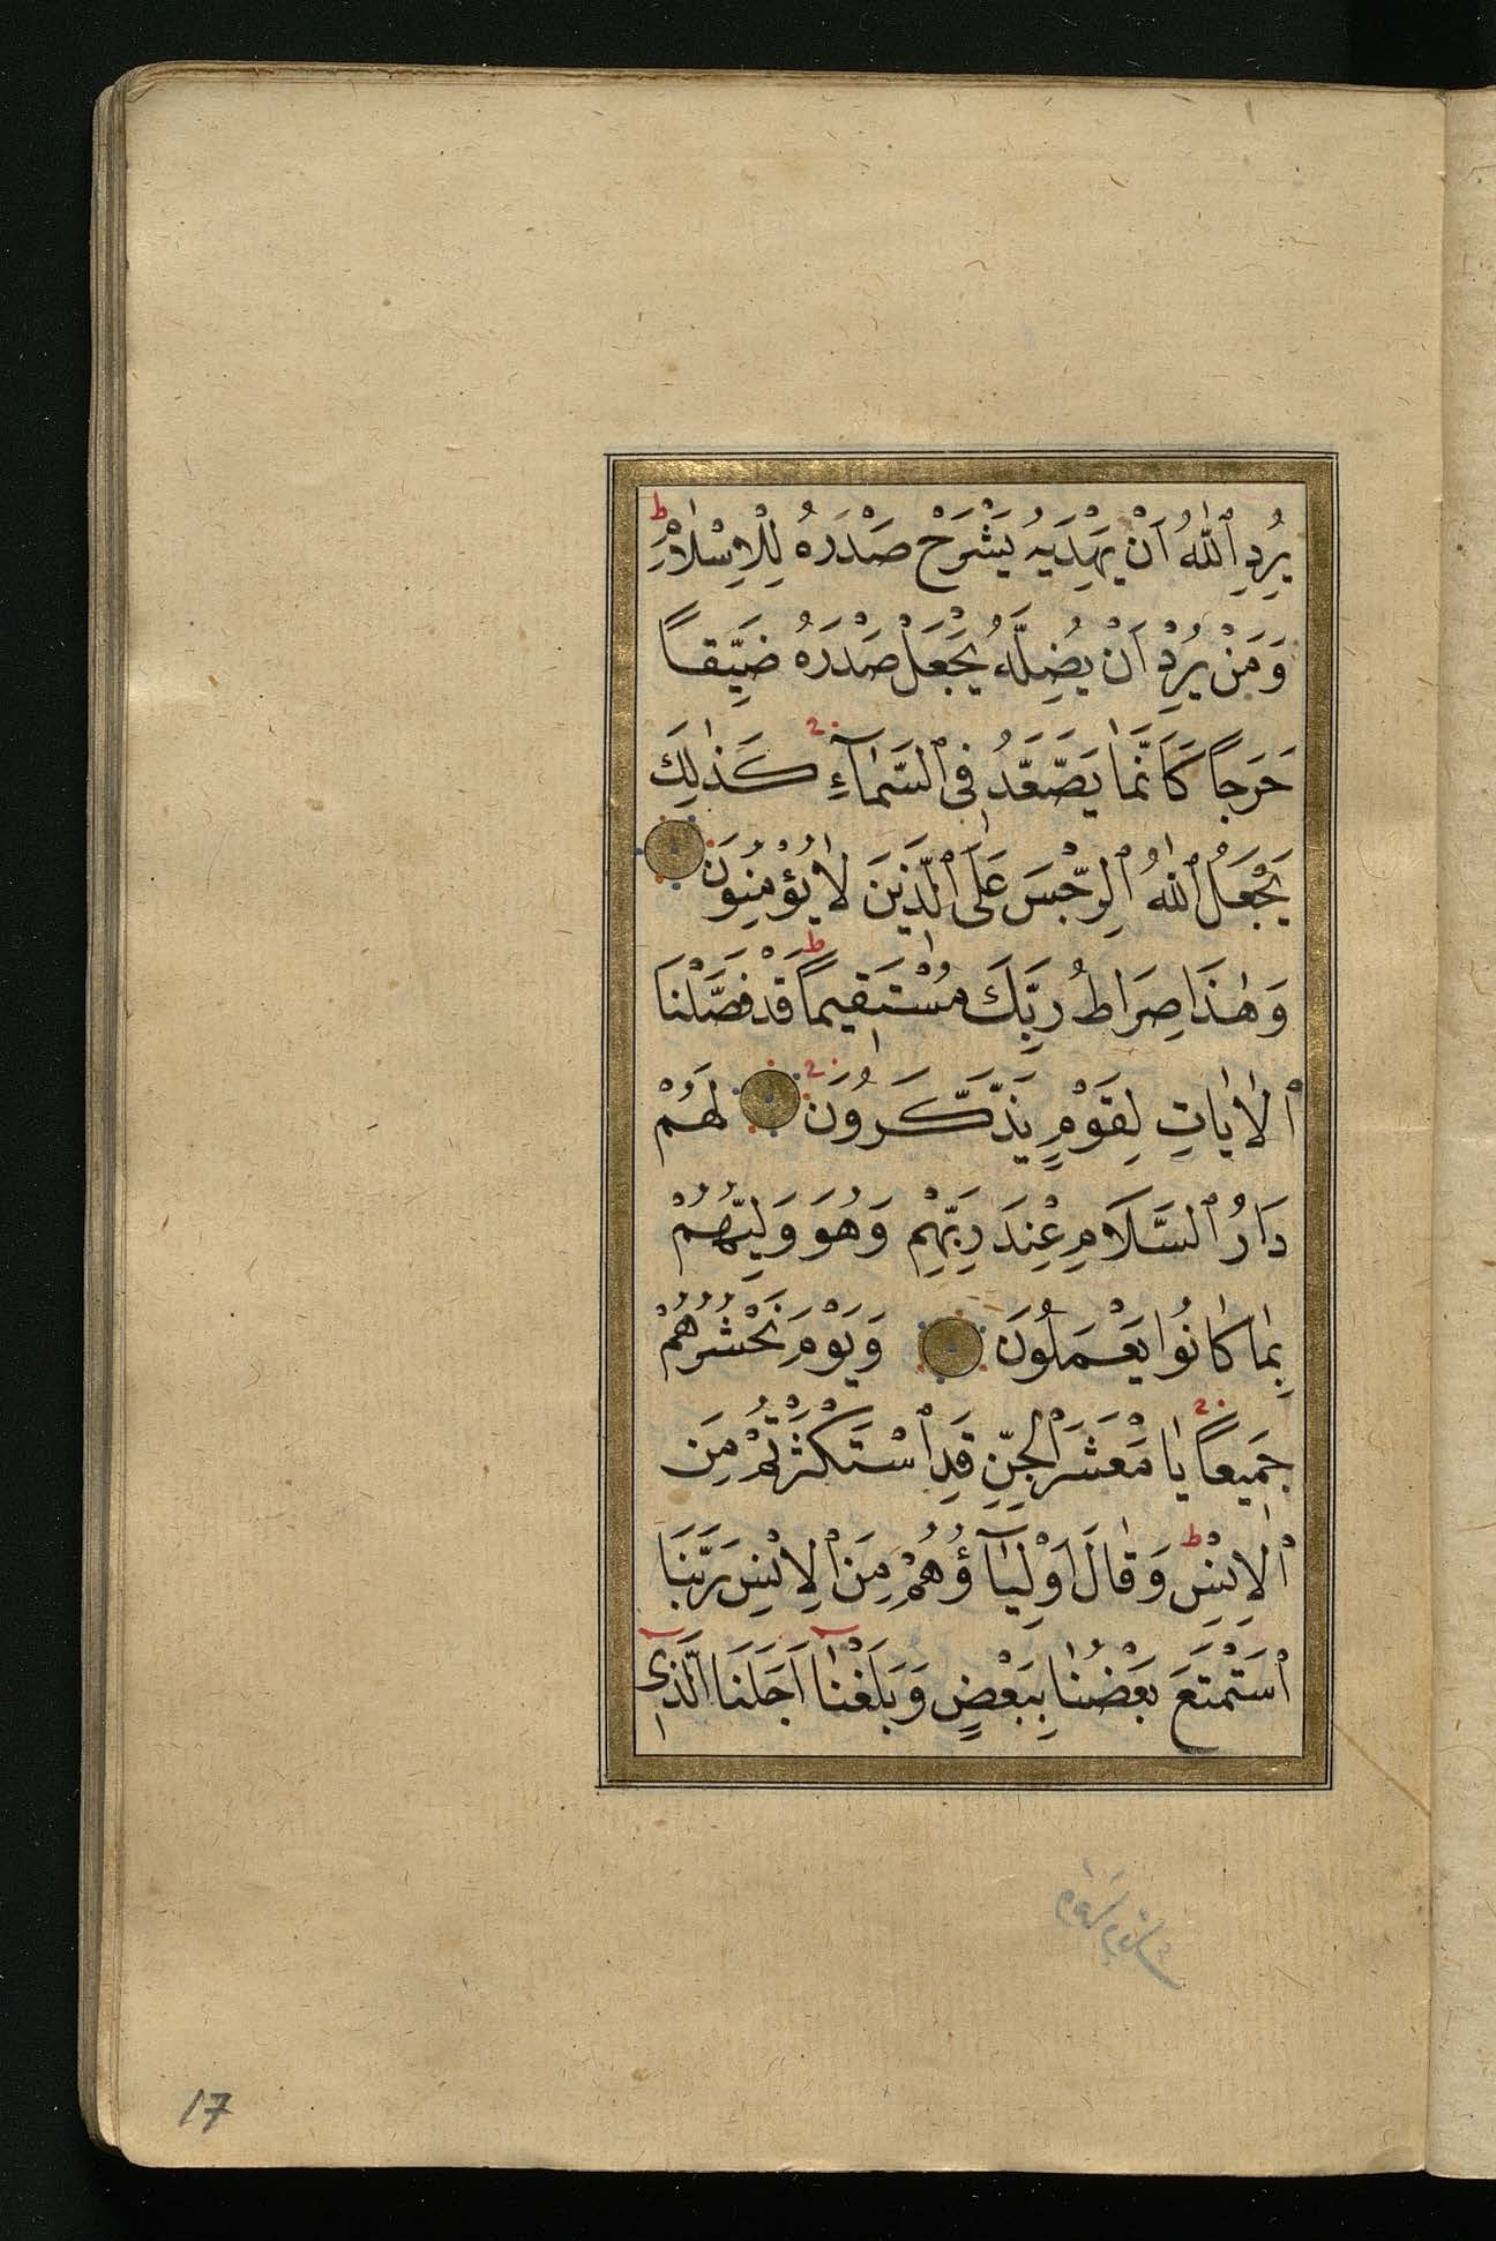 يُرِدِ ٱللّٰهُ اَنْ يَهْدِيَهُ يَشْرَحْ صَدْرَهُ لِلْاِسْلَامِۚ ط
وَمَنْ يُرِدْ اَنْ يُضِلَّهُ يَجْعَلْ صَدْرَهُ ضَيِّقًا
حَرَجًا كَاَنَّمَا يَصَّعَّدُ فِى ٱلسَّمَٓاءِ ج كَذٰلِكَ
يَجْعَلُ ٱللّٰهُ ٱلرِّجْسَ عَلَى ٱلَّذِينَ لَا يُؤْمِنُونَ
وَهٰذَا صِرَاطُ رَبِّكَ مُسْتَقِيمًا ط قَدْ فَصَّلْنَا
ٱلْاٰيَاتِ لِقَوْمٍ يَذَّكَّرُونَ ج لَهُمْ
دَارُ ٱلسَّلَامِ عِنْدَ رَبِّهِمْ وَهُوَ وَلِيُّهُمْ
بِمَا كَانُوا يَعْمَلُونَ وَيَوْمَ نَحْشُرُهُمْ
جَمِيعًا ج يَا مَعْشَرَ ٱلْجِنِّ قَدِ ٱسْتَكْثَرْتُمْ مِنَ
ٱلْاِنْسِ ط وَقَالَ اَوْلِيَٓاؤُهُمْ مِنَ ٱلْاِنْسِ رَبَّنَا
ٱسْتَمْتَعَ بَعْضُنَا بِبَعْضٍ وَبَلَغْنَٓا اَجَلَنَا ٱلَّذِٓى
17